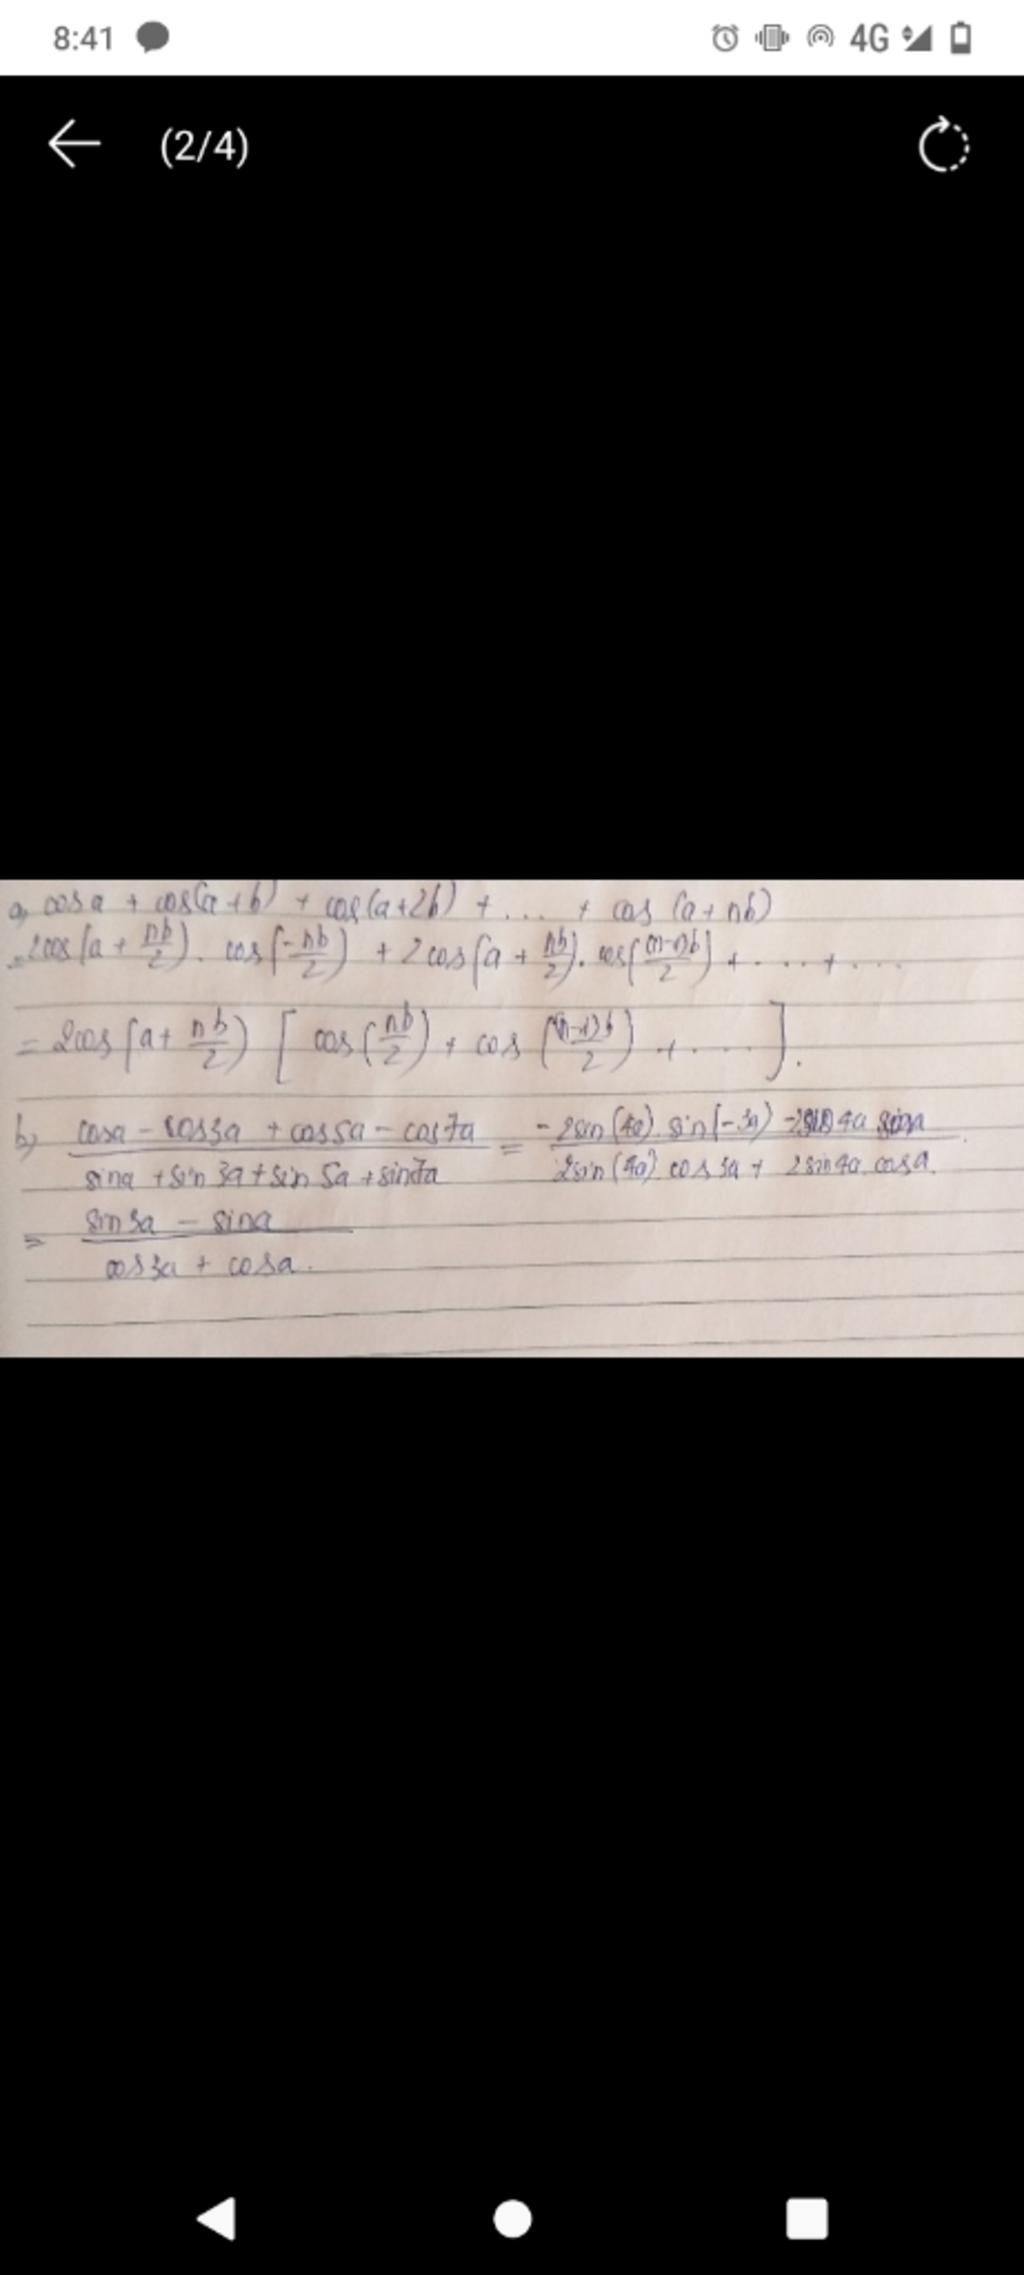 8:41 4G
(2/4)
a, cosa + cos(a+b) + cos(a+2b) + .... + cos (a+nb)
= 2cos(a + nb/2). cos(-nb/2) + 2cos(a + nb/2). cos((n-1)b/2) + .... + ...
= 2cos(a + nb/2) [ cos(nb/2) + cos ((n-1)b/2) + .... ].
b, (cosa - cos3a + cos5a - cos7a)/(sina + sin 3a + sin 5a + sin7a) = (-2sin(4a) sin(-3a) - 2sin 4a sina)/(2sin(4a) cos 3a + 2sin4a. cosa.)
= (sin3a - sina)/(cos3a + cosa.)